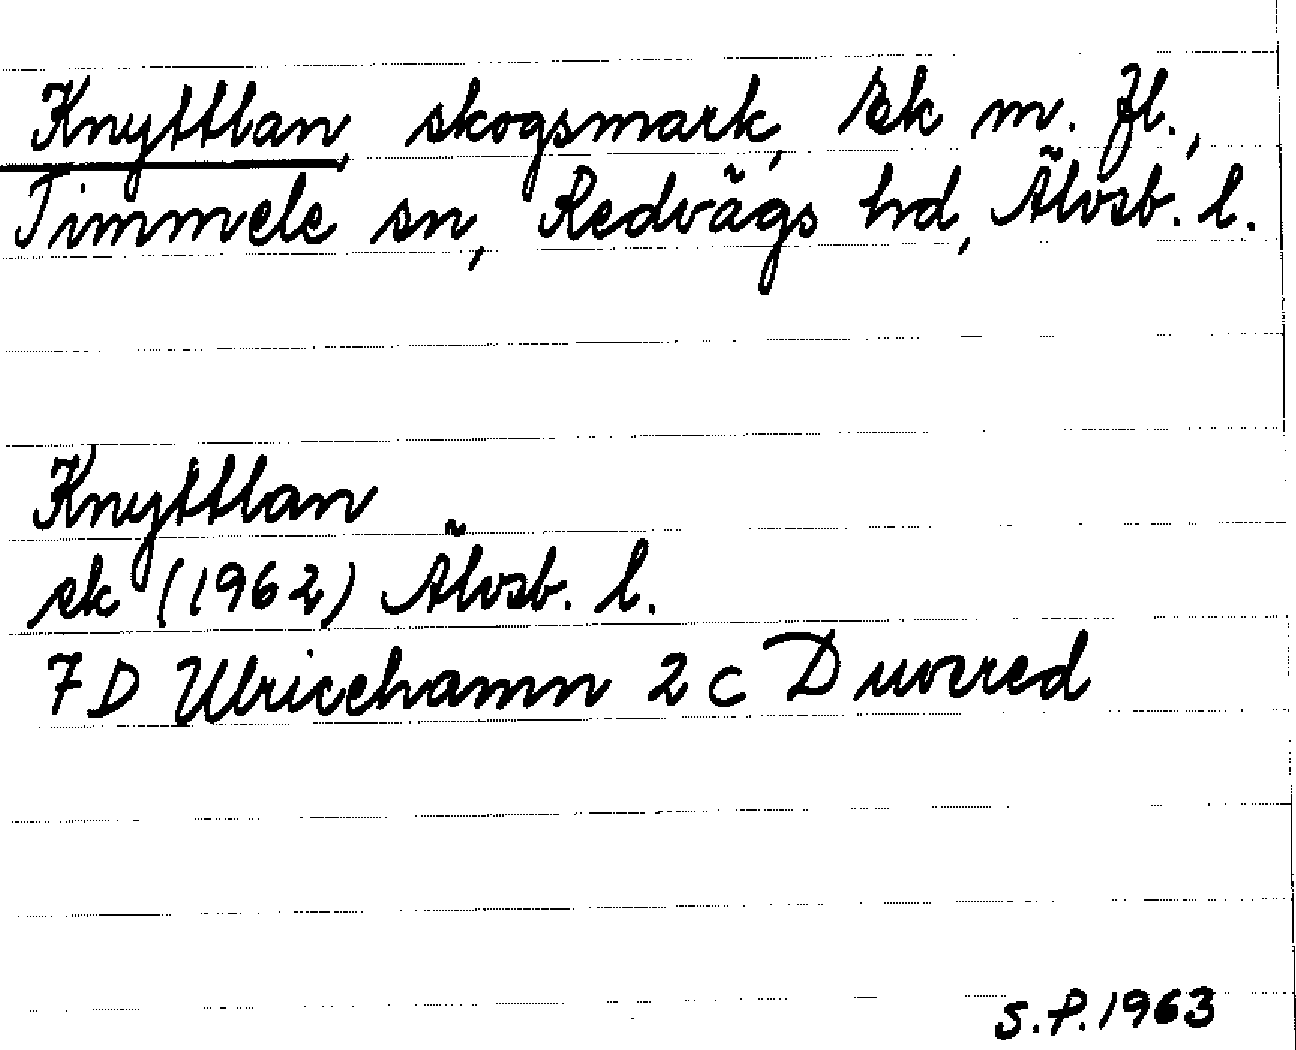 Knyttlan, skogsmark, Ek m. fl.,
Timmele sn, Redvägs hd, Älvsb. l.
Knyttlan
ek (1962) Älvsb. l.
7D Ulricehamn 2c Duvered
S.P.1963